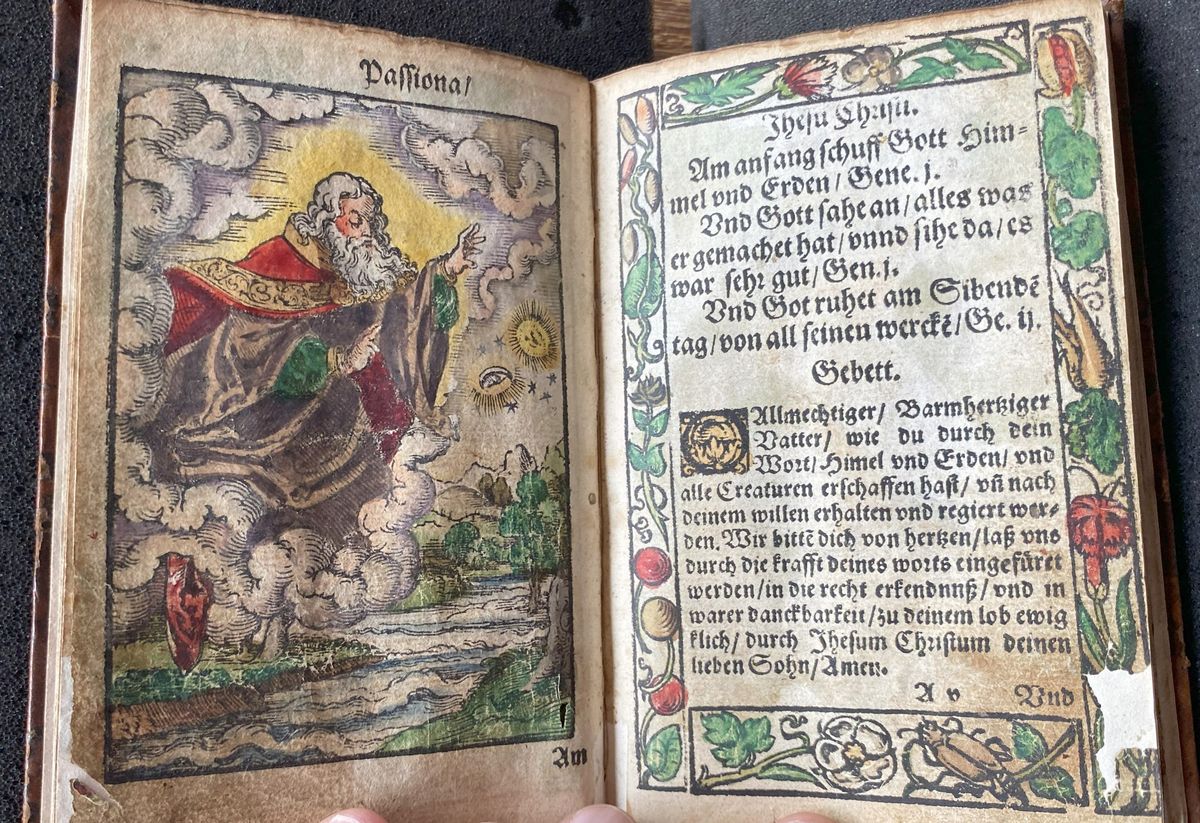 Passiona/
Am
Jhesu Christi.
Am anfang schuff Gott Him⸗
mel vnd Erden/ Gene. j.
Vnd Gott sahe an/ alles was
er gemachet hat/ vnnd sihe da/ es
war sehr gut/ Gen. j.
Vnd Got ruhet am Sibendẽ
tag/ von all seinen werckẽ/ Ge. ij.
Gebett.
O Allmechtiger/ Barmhertziger
Vatter/ wie du durch dein
Wort/ Himel vnd Erden/ vnd
alle Creaturen erschaffen hast/ vñ nach
deinem willen erhalten vnd regiert wer⸗
den. Wir bittẽ dich von hertzen/ laß vns
durch die krafft deines worts eingefüret
werden/ in die recht erkendnnß/ vnd in
warer danckbarkeit/ zu deinem lob ewig
klich/ durch Jhesum Christum deinen
lieben Sohn/ Amen.
A v Vnd